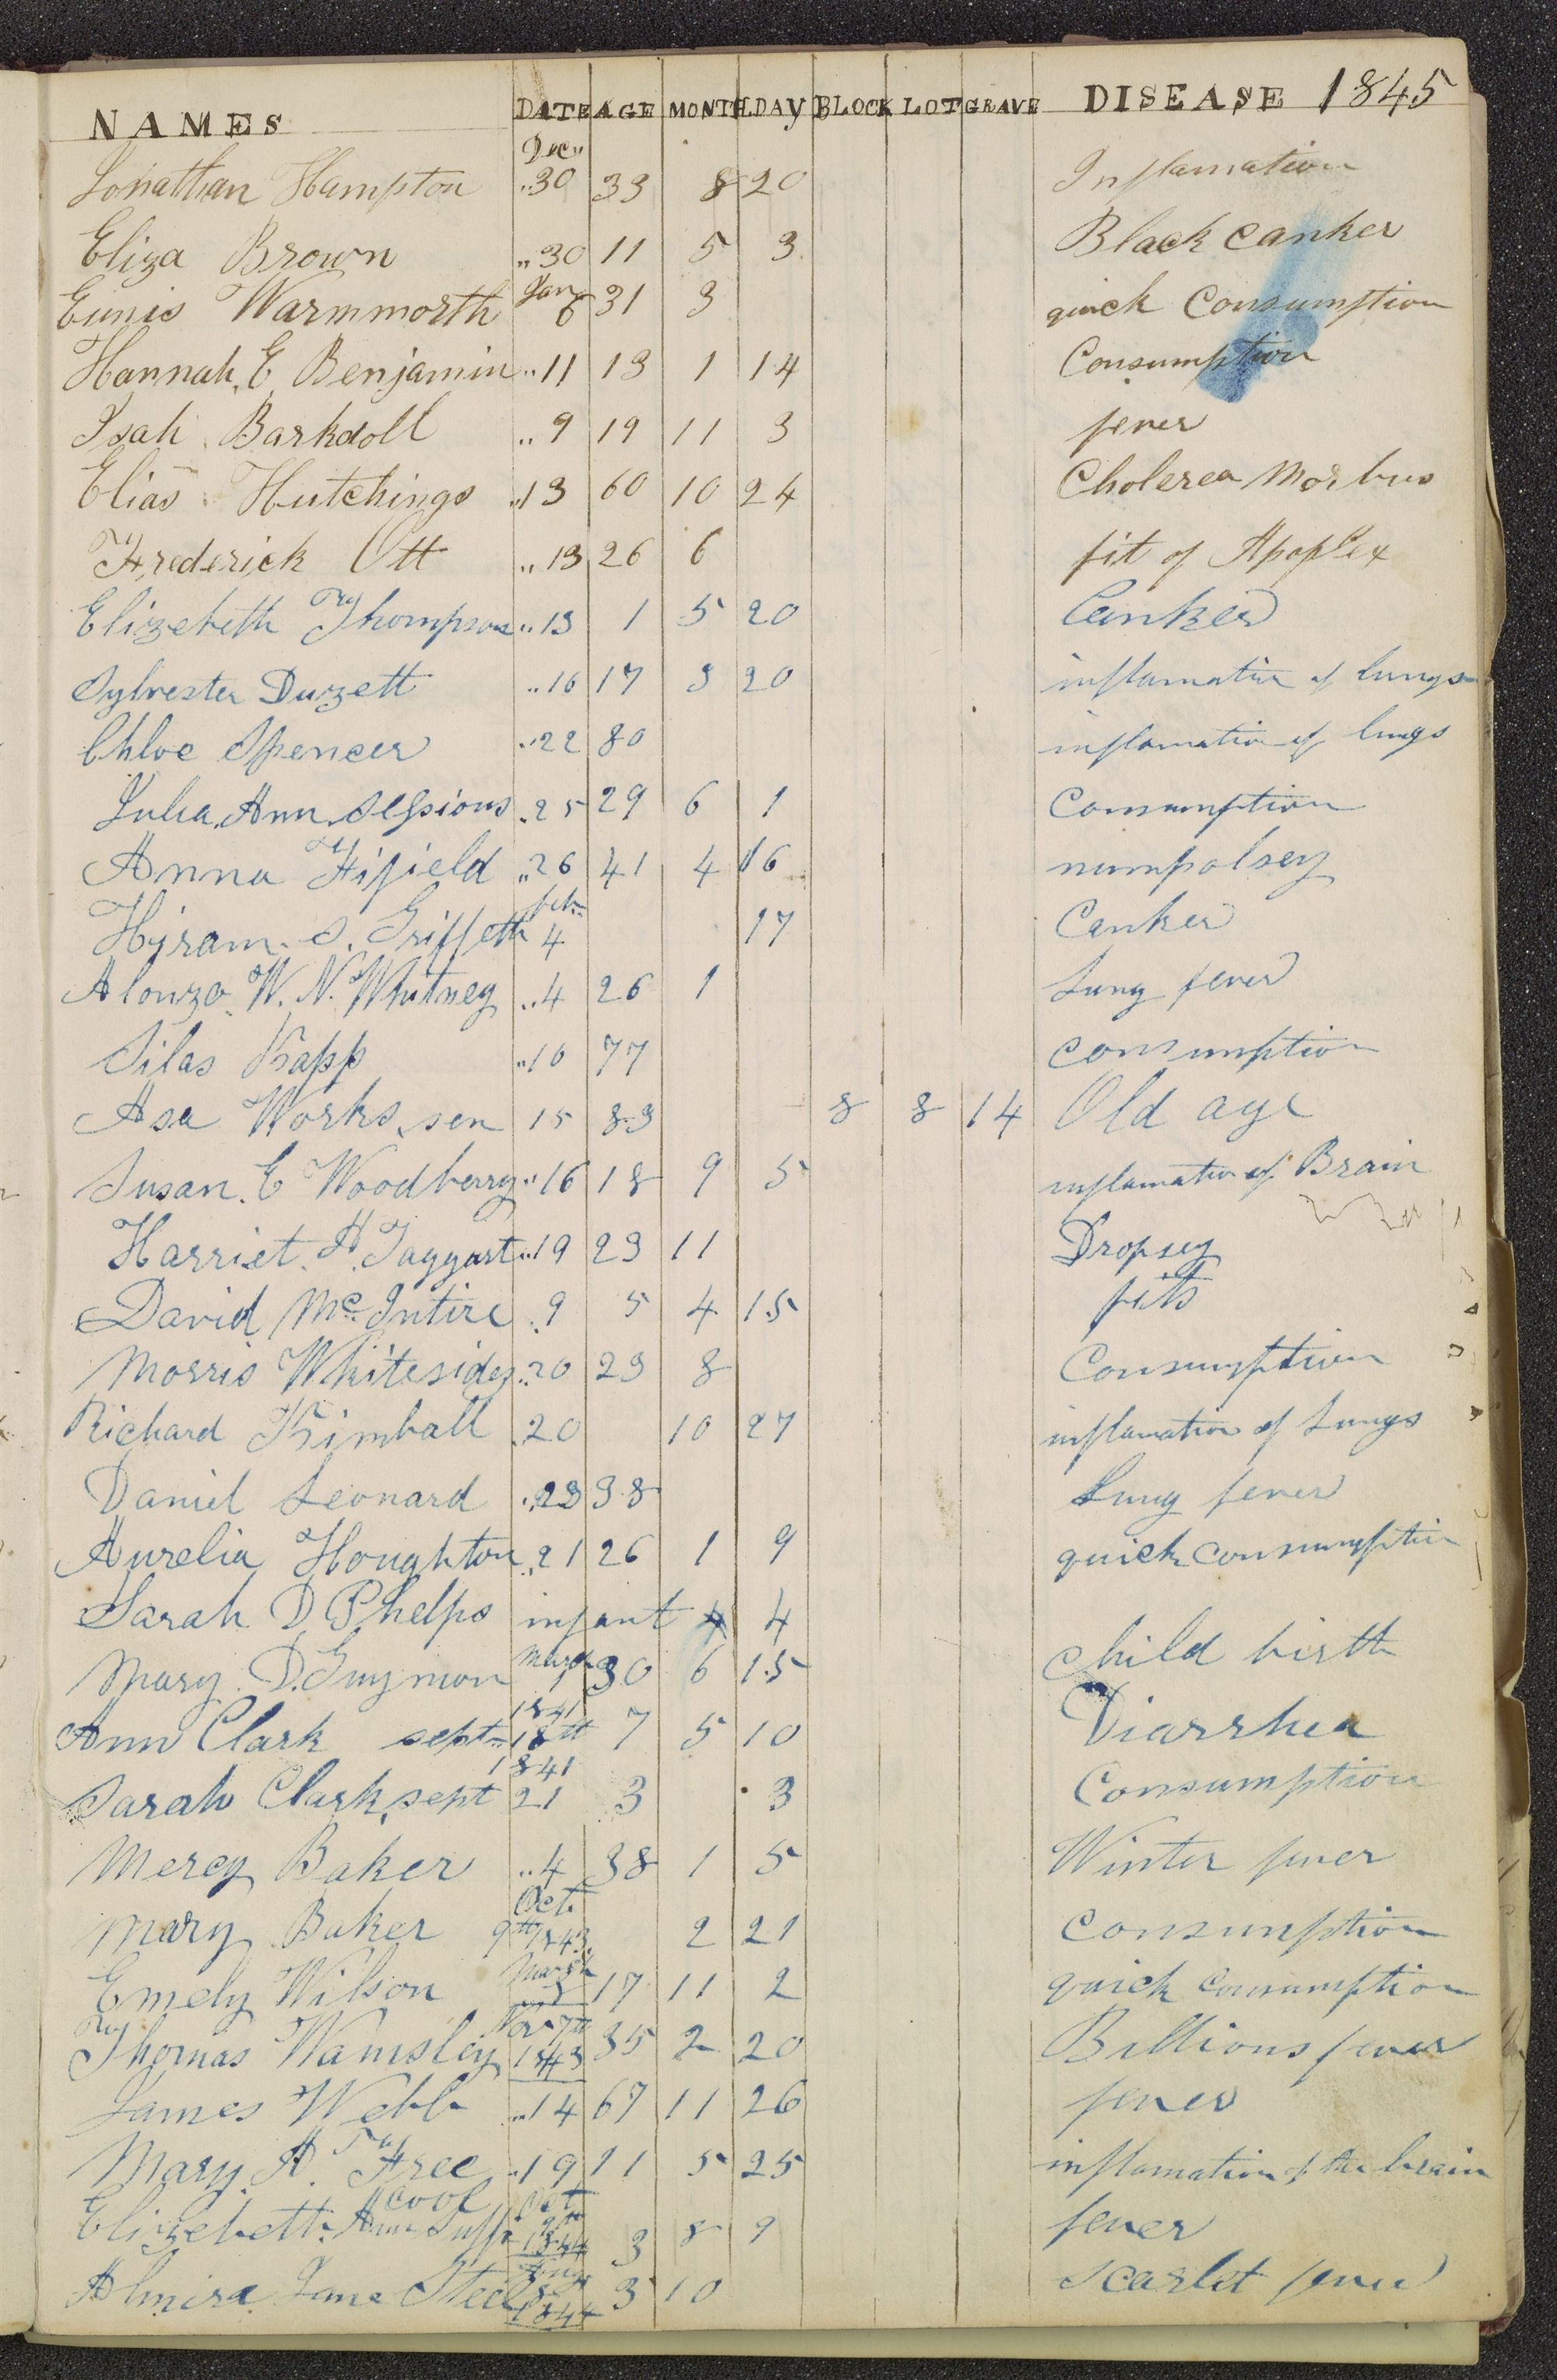 NAMES DATE AGE MONTH DAY BLOCK LOT GRAVE DISEASE 1845
Dec"
Jonathan Hampton "30 33 8 20 Inflamation
Eliza Brown "30 11 5 3 Black canker
Jan
Eunis Warmmorth 6 31 3 quick Consumption
Hannah. E Benjamin "11 13 1 14 Consumption
Isah Barkdoll "9 19 11 3 fever
Elias Hutchings "13 60 10 24 Cholerea Morbus
Frederick Ott "13 26 6 fit of Apoplex
Elizebeth Thompson "13 1 5 20 Canker
Sylvester Duzett "16 17 3 20 inflamation of lungs
Chloe Spencer "22 80 inflamation of lungs
Julia Ann Sessions "25 29 6 1 Consumption
Anna Fifield "26 41 4 16 numpalsey
feb
Hyram. S. Griffeth 4 17 Canker
Alonzo W. N. Whitney "4 26 1 Lung fever
Silas Kapp "10 77 consumption
Asa Works sen 15 83 8 8 14 Old age
Susan. E Woodberry "16 18 9 5 inflamation of Brain
Harriet A Taggart "19 23 11 Dropsey
David McIntire "9 5 4 15 fits
Morris Whitesides "20 23 8 Consumption
Richard Kimball 20 10 27 inflamation of Lungs
Daniel Leonard "23 38 Lung fever
Aurelia Houghton "21 26 1 9 quick consumption
Sarah D Phelps infant 4 4
March
Mary. D. Guymon 1 30 6 15 Child birth
1841
Ann Clark sept 18th 7 5 10 Diarrhea
1841
Sarah Clark sept 21 3 3 Consumption
Mercy Baker "4 38 1 5 Winter fever
Oct
Mary Baker 9th 1843 2 21 Consumption
March
Emely Wilson 5 17 11 2 quick Consumption
Nov 7th
Thomas Wamsley 1843 35 2 20 Billious fever
James Webb "14 67 11 26 fever
Mary A. Free "19 11 5 25 inflamation of the brain
Cool Oct
Elizebeth Ann 9th 1844 3 8 9 fever
Almira Jane Steel 1844 3 10 Scarlet fever